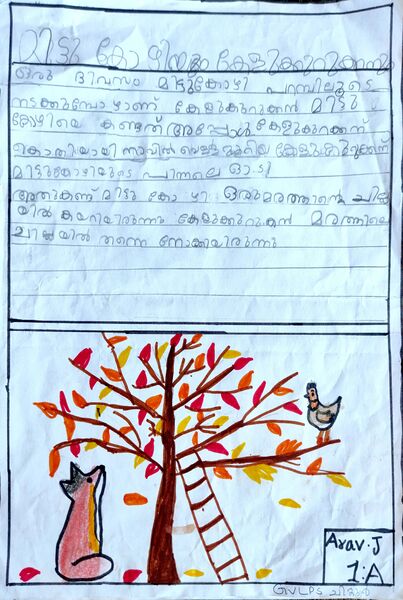 മിട്ടു കോഴിയും കേളുക്കുറുക്കനും
ഒരു ദിവസം മിട്ടുകോഴി പറമ്പിലൂടെ
നടക്കുമ്പോഴാണ് കേളുകുറുക്കൻ മിട്ടു
കോഴിയെ കണ്ടത് അപ്പോൾ കേളുകുറുക്കന്
കൊതിയായി നാവിൽ വെള്ളമൂറിയ കേളുകുറുക്കന്
മിട്ടുകോഴിയുടെ പിന്നാലെ ഓടി
അതുകണ്ട് മിട്ടു കോഴി ഒരുമരത്തിന്റെ ചില്ല
യിൽ കയറിയിരുന്നു കേളുക്കുറുക്കൻ മരത്തിലെ
ചില്ലയിൽ തന്നെ നോക്കിയിരുന്നു
Arav.J
1:A
GVLPS ചിറ്റൂർ